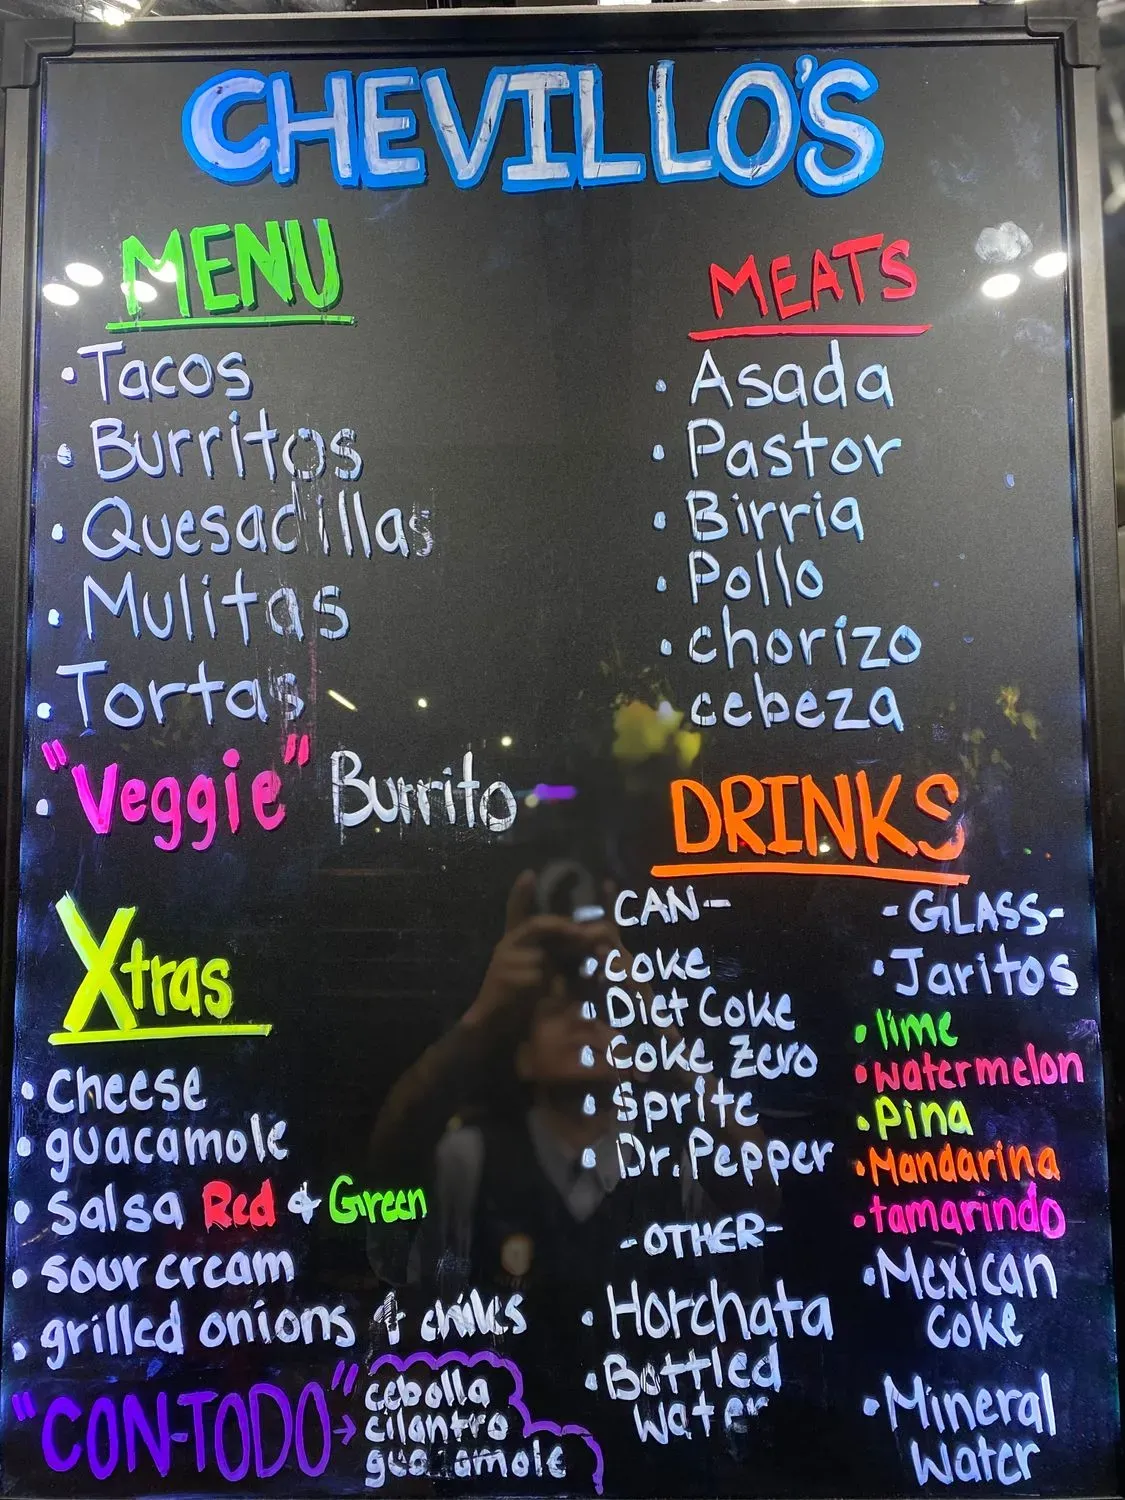 CHEVILLO'S
MENU
• Tacos
• Burritos
• Quesadillas
• Mulitas
• Tortas
• "Veggie" Burrito
Xtras
• cheese
• guacamole
• Salsa Red & Green
• sour cream
• grilled onions & chiles
"CON-TODO" → cebolla
cilantro
guacamole
MEATS
• Asada
• Pastor
• Birria
• Pollo
• chorizo
cebeza
DRINKS
- CAN -
• coke
• Diet Coke
• Coke Zero
• Sprite
• Dr. Pepper
- OTHER -
• Horchata
• Bottled
Water
- GLASS -
• Jaritos
• lime
• watermelon
• Pina
• Mandarina
• tamarindo
• Mexican
Coke
• Mineral
Water